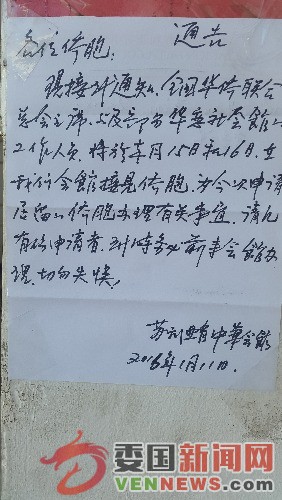 通告
各位侨胞：
现接到通知，全国华侨联合
总会主席，及部份华恳社会館
工作人员，将于本月15日和16日，在
我们会館接見侨胞，为今次申请
居留的侨胞办理有关事宜，请凡
有份申请者，到时务必前来会館办
理，切勿失误！
苏利亚省中華会館
2016年1月11日.
委国新闻网
VENNEWS.COM